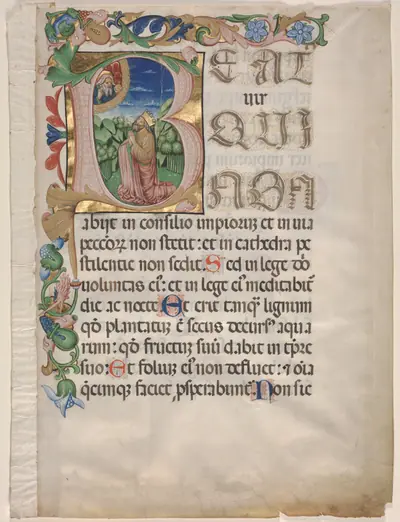 BEAT
uir
QUI
NON
abijt in consilio impioruʒ et in uia
peccōꝝ non stetit: et in cathedra pe
stilentie non sedit. Sed in lege dō
uoluntas eiꝰ: et in lege eiꝰ meditabit̄
die ac nocte. Et erit tanqʒ lignum
qd̄ plantatuʒ ē secus decursꝰ aqua
rum: qd̄ fructuʒ suū dabit in tp̄re
suo: Et foliuʒ eiꝰ non defluet: ⁊ oīa
q̄cumqʒ faciet ꝓsperabunt̄. Non sic